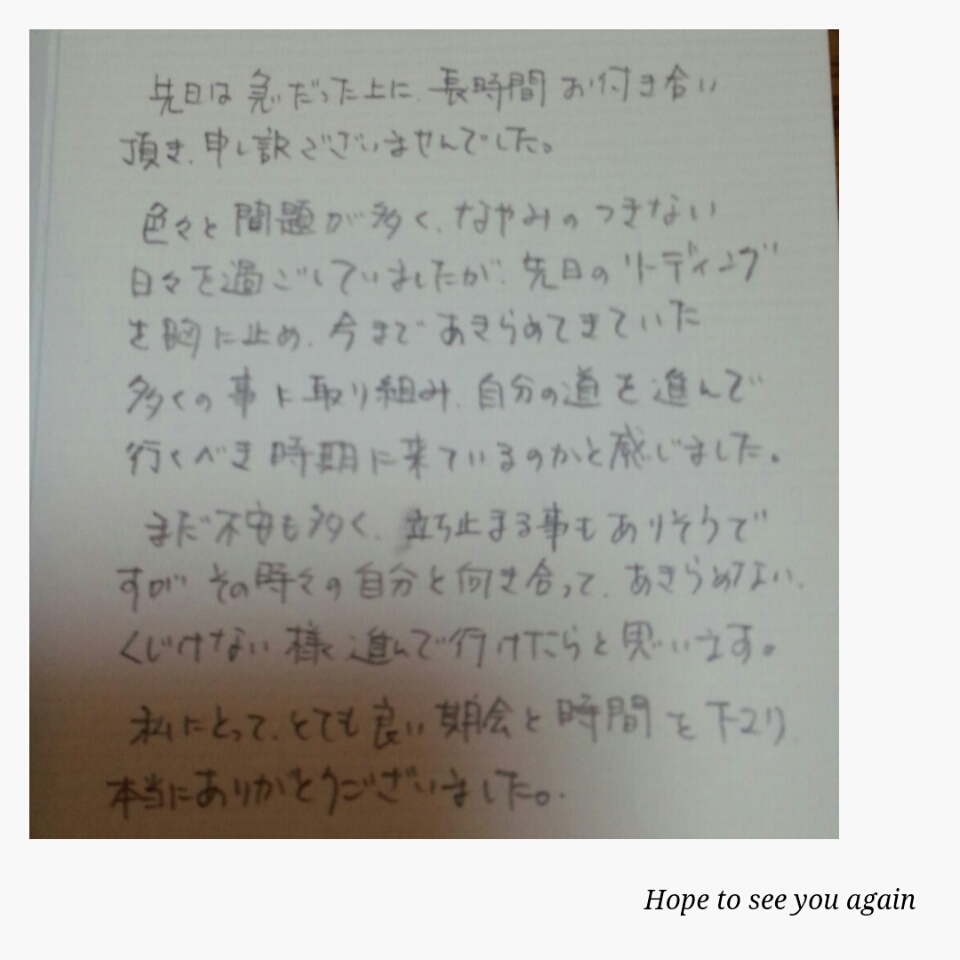 先日は急だった上に、長時間お付き合い
頂き、申し訳ございませんでした。
色々と問題が多く、なやみのつきない
日々を過ごしていましたが、先日のリーディング
を胸に止め、今まであきらめてきていた
多くの事に取り組み、自分の道を進んで
行くべき時期に来ているのかと感じました。
まだ不安も多く、立ち止まる事もありそうで
すが その時々の自分と向き合って、あきらめない、
くじけない様 進んで行けたらと思います。
私にとって、とても良い期会と時間を下さり、
本当にありがとうございました。
Hope to see you again